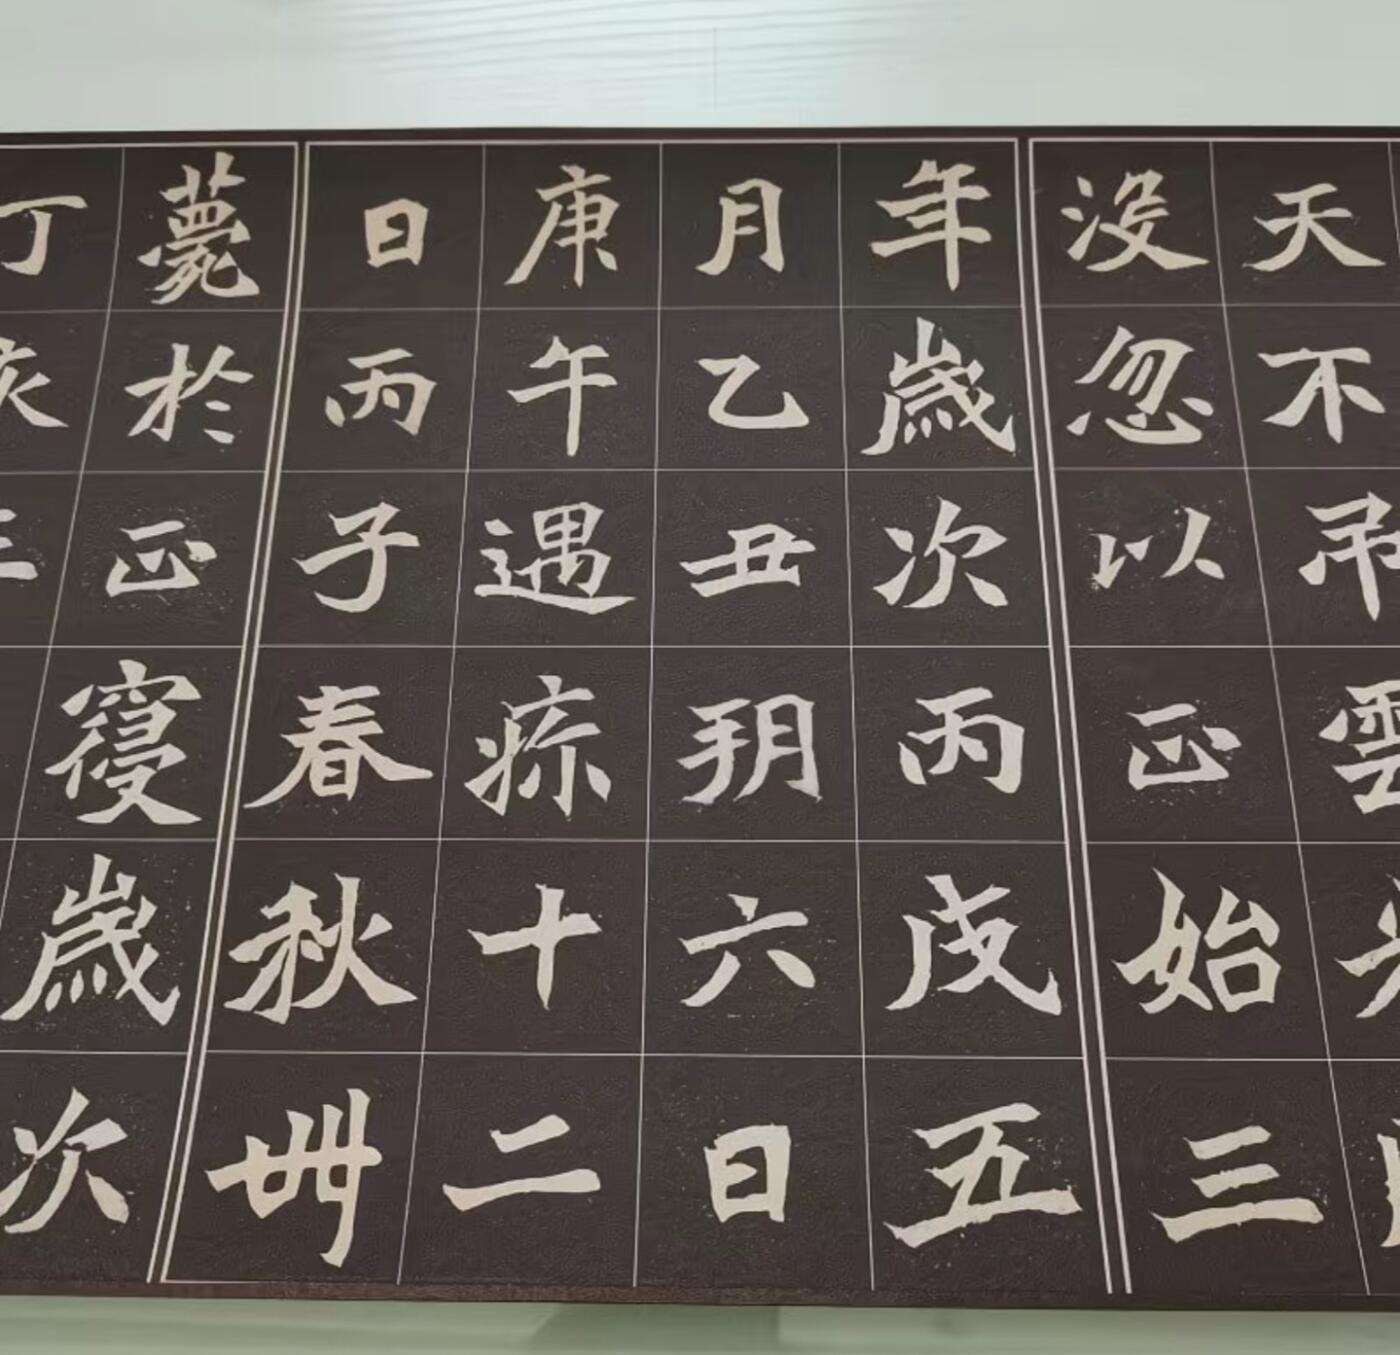 天不弔雲
没忽以正始三
年歲次丙戌五
月乙丑朔六日
庚午遇十二
日丙子春秋卌
薨於正寢歲次
丁亥三